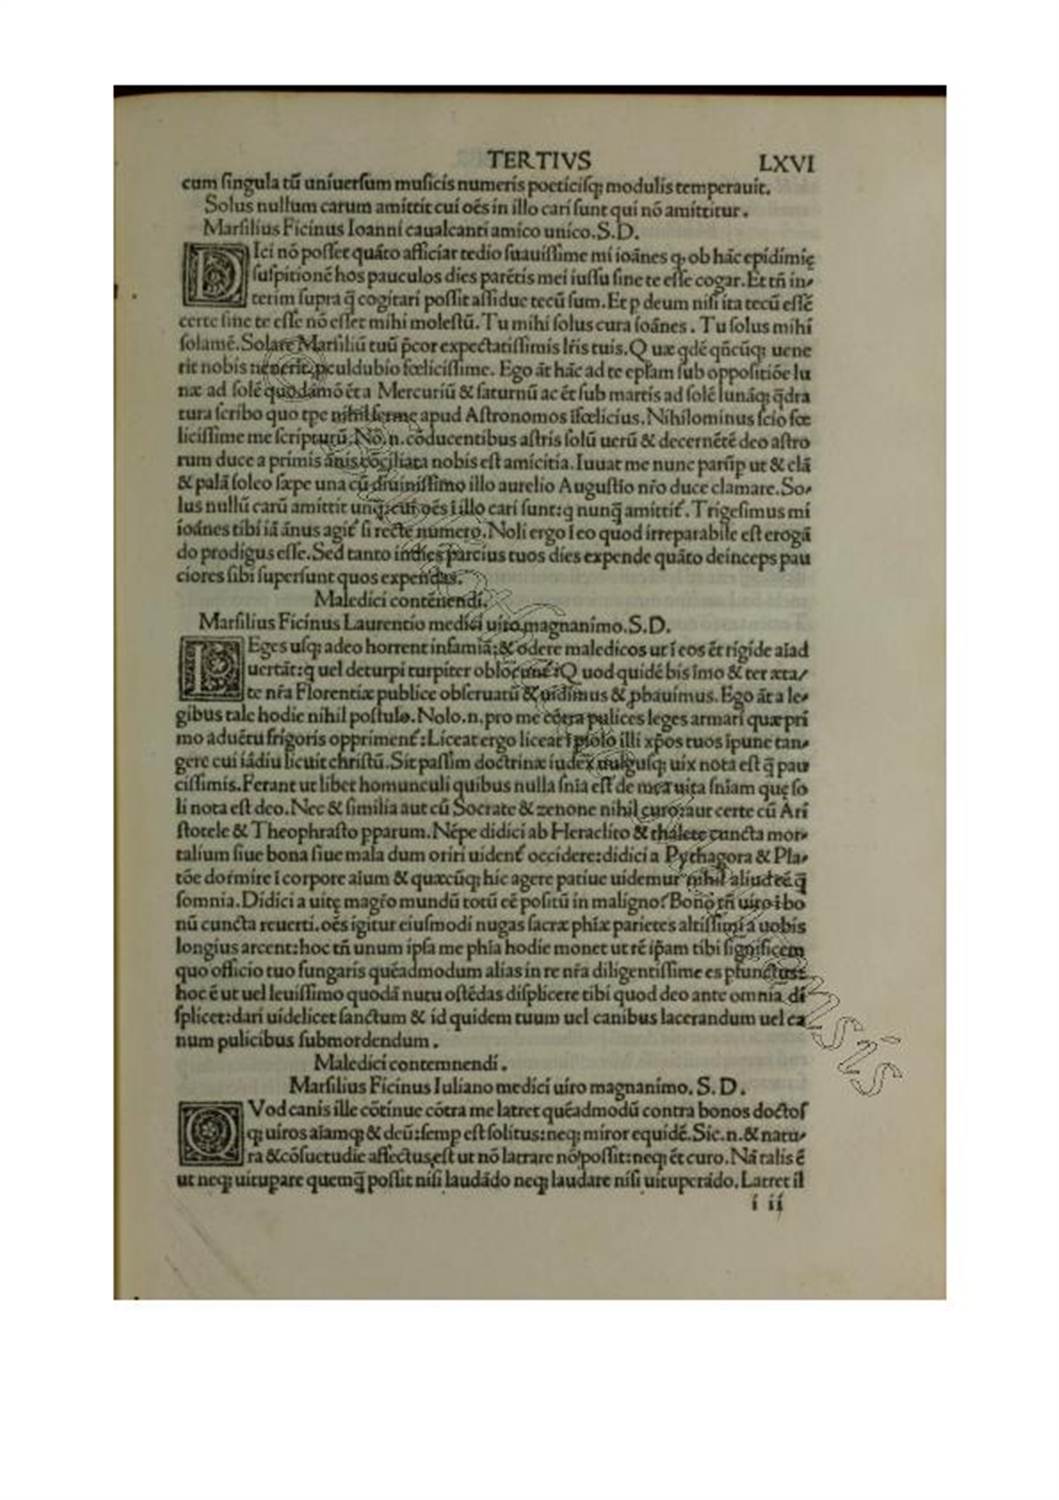 TERTIVS LXVI
cum ſingula tū uniuerſum muſicis numeris poeticiſq; modulis temperauit.
Solus nullum carum amittit cui oēs in illo cari ſunt qui nō amittitur.
Marſilius Ficinus Ioanni caualcanti amico unico.S.D.
DIci nō poſſet quāto afficiar tedio ſuauiſſime mi ioānes q, ob hāc epidimię
ſuſpitionē hos pauculos dies parētis mei iuſſu ſine te eſſe cogar.Et tñ in-
terim ſupra q̄ cogitari poſſit aſſidue tecū ſum.Et p deum niſi ita tecū eſſē
certe ſine te eſſe nō eſſet mihi moleſtū.Tu mihi ſolus cura ioānes. Tu ſolus mihi
ſolamē.Solare Marſiliū tuū p̄cor expectatiſſimis lr̄is tuis.Quæ qdē qñcūq; uene
rit nobis uenerit,pculdubio fœliciſſime. Ego āt hāc ad te epſam ſub oppoſitiōe lu
næ ad ſolē quodāmō ēt a Mercuriū & ſaturnū ac ēt ſub martis ad ſolē lunāq; q̄dra
tura ſcribo quo tpe nihil ferme apud Aſtronomos īfœlicius.Nihilominus ſcio fœ
liciſſime me ſcripturū.Nō.n.cōducentibus aſtris ſolū uerū & decernētē deo aſtro
rum duce a primis ānis cōciliata nobis eſt amicitia.Iuuat me nunc parūp ut & clā
& palā ſoleo ſæpe una cū diuiniſſimo illo aurelio Auguſtio nr̄o duce clamare.So-
lus nullū carū amittit unq̄; cui oēs ī illo cari ſunt:q nunq̄ amittit᷑.Trigeſimus mi
ioānes tibi iā ānus agit᷑ ſi recte numero.Noli ergo ī eo quod irreparabile eſt erogā
do prodigus eſſe.Sed tanto indies parcius tuos dies expende quāto deinceps pau
ciores ſibi ſuperſunt quos expendas.
Maledici contēnendi.
Marſilius Ficinus Laurentio medici uiro magnanimo.S.D.
LEges uſq; adeo horrent infamiā:& odere maledicos ut ī eos ēt rigide aīad
uertāt:q uel deturpi turpiter Quod quidē bis īmo & ter æta-
te nr̄a Florentiæ publice obſeruatū & uidimus & pbauimus. Ego āt a le-
gibus tale hodie nihil poſtulo.Nolo.n.pro me cōtra pulices leges armari quæ pri
mo aduētu frigoris opprimēt᷑:Liceat ergo liceat illi xp̄os tuos īpune tan-
gere cui iādiu licuit chriſtū.Sit paſſim doctrinæ iudex uulguſq; uix nota eſt q̄ pau
ciſſimis.Ferant ut libet homunculi quibus nulla ſnīa eſt de mea uita ſniam quę ſo
li nota eſt deo.Nec & ſimilia aut cū Socrate & zenone nihil curo:aut certe cū Ari
ſtotele & Theophraſto pparum.Nēpe didici ab Heraclito & thalete cuncta mor-
talium ſiue bona ſiue mala dum oriri uident᷑ occidere:didici a Pythagora & Pla-
tōe dormire ī corpore aīum & quæcūq; hic agere patiue uidemur nihil aliud eē q̄
ſomnia.Didici a uitę magr̄o mundū totū eē poſitū in maligno:Bono tñ uiro ī bo
nū cuncta reuerti.oēs igitur eiuſmodi nugas ſacræ phīæ parietes altiſſimi a uobis
longius arcent:hoc tñ unum ipſa me phīa hodie monet ut rē ip̄am tibi ſignificem
quo officio tuo fungaris quēadmodum alias in re nr̄a diligentiſſime es pfunctus:
hoc ē ut uel leuiſſimo quodā nutu oſtēdas diſplicere tibi quod deo ante omnia di
ſplicet:dari uidelicet ſanctum & id quidem tuum uel canibus lacerandum uel ca
num pulicibus ſubmordendum.
Maledici contemnendi.
Marſilius Ficinus Iuliano medici uiro magnanimo. S.D.
QVod canis ille cōtinue cōtra me latret quēadmodū contra bonos doctoſ
q; uiros aīamq; & deū:ſemp eſt ſolitus:neq; miror equidē.Sic.n.& natu-
ra & cōſuetudie affectus eſt ut nō latrare nō poſſit:neq; ēt curo.Nā talis ē
ut neq; uitupare quemq̄ poſſit niſi laudādo neq; laudare niſi uituperādo.Latret il
i ii